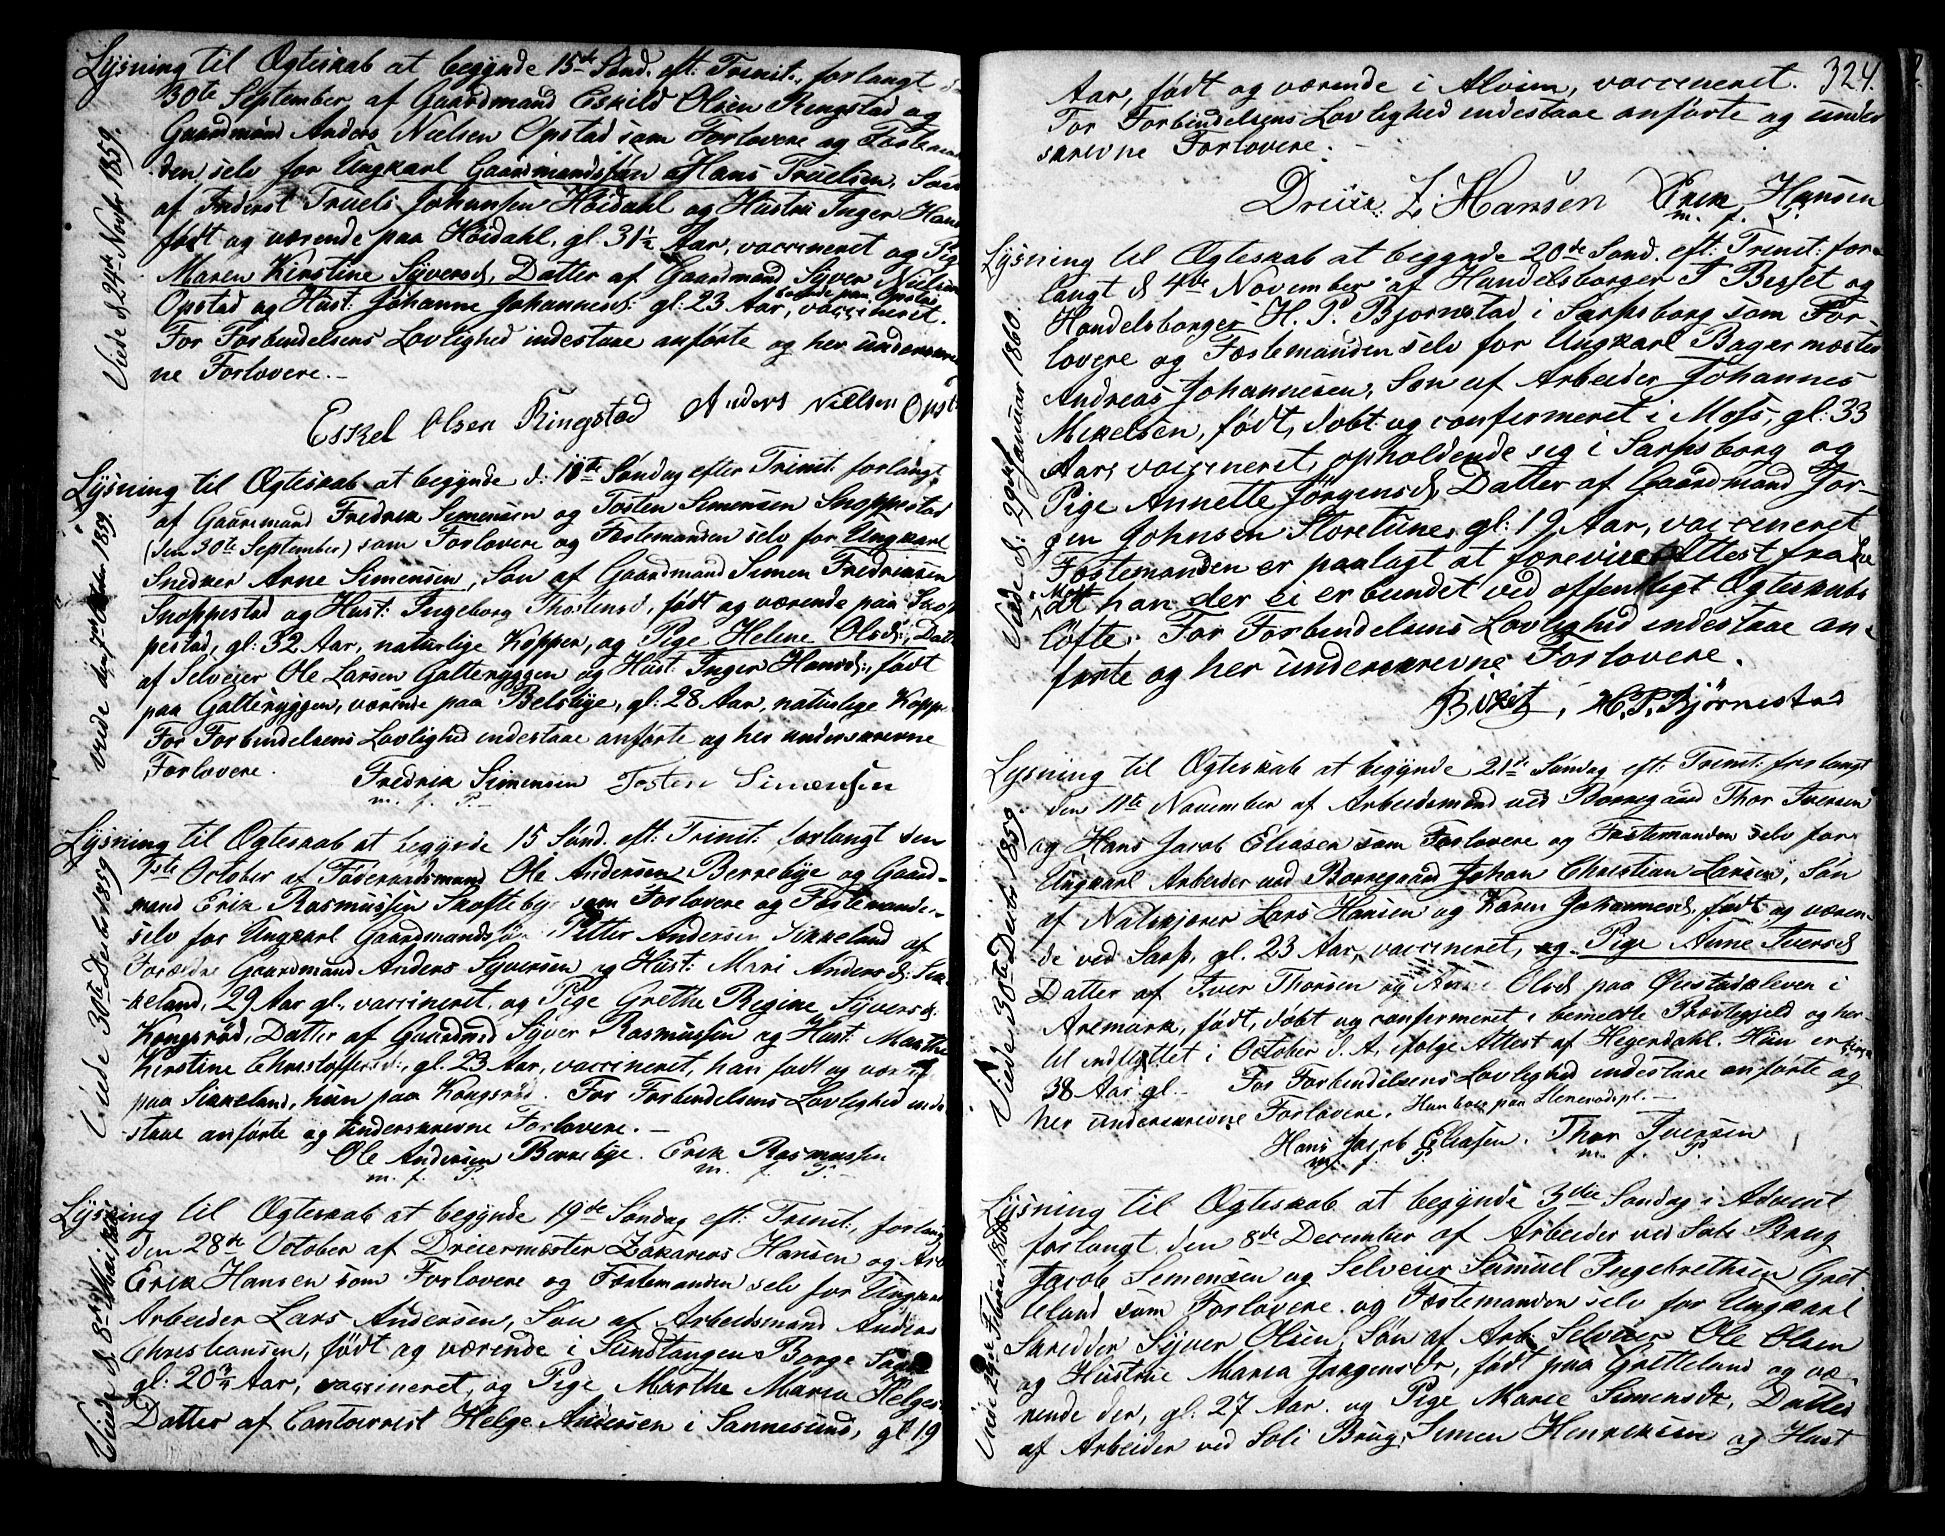 Lysning til Ægteskab at begynde 15de Sønd. eft: Trinit:, forlangt
30te September, af Gaardmand Eskild Olsen Ringstad og
Gaardmand Anders Nielsen Opstad som Forlovere og Fæsteman
den selv for Ungkarl Gaardmandssøn Hans Truelsen, Søn
af Inderst Truels Johansen Høidahl og Hustru Inger Hans
født og værende paa Høidahl, gl. 31½ Aar, vaccineret og Pige
Maren Kirstine Syversd, Datter af Gaardmand Syver Nielsen
Opstad og Hust: Johanne Johannesd: gl: 23 Aar, vaccineret.
For Forbindelsens Lovlighed indestaae anførte og her underskrev
ne Forlovere.
Viede d 24de Novbr 1859.
Eskel Olsen Ringstad Anders Nielsen Opst
Lysning til Ægteskab at begynde d: 18te Søndag efter Trinit: forlangt
af Gaardmand Fredrik Simensen og Tosten Simensen Snoppestad
(den 30te September) som Forlovere og Fæstemanden selv for Ungkarl
Snedker Arne Simensen, Søn af Gaardmand Simen Fredriksen
Snoppestad og Hust: Ingeborg Thostensd, født og værende paa Snop
pestad, gl: 32 Aar, naturlige Kopper, og Pige Helene Olsd:, Datt
af Selveier Ole Larsen Galteryggen og Hust: Inger Hansd:, født
paa Galteryggen, værende paa Belsbye, gl: 28 Aar, naturlige Kopp
For Forbindelsens Lovlighed indestaae anførte og her underskrevne
Forlovere.
Fredrik Simensen Tosten Simensen
m. f. P.
Lysning til Ægteskab at begynde 15 Sønd. eft: Trinit: forlangt den
1ste October af Føderaadsmand Ole Andersen Berrebye og Gaard-
mand Erik Rasmussen Skoftebye som Forlovere og Fæstemanden
selv for Ungkarl Gaardmandssøn Petter Andersen Sikkeland af
Forældre Gaardmand Anders Syversen og Hust: Mari Andersd: Sik
keland, 29 Aar gl. vaccineret og Pige Grethe Regine Syversd:
Kongsrød, Datter af Gaardmd Syver Rasmussen og Hust: Marthe
Kirstine Christoffersd:, gl. 23 Aar, vaccineret, han født og vær
paa Sikkeland, hun paa Kongsrød. For Forbindelsens Lovlighed inde
staae anførte og underskrevne Forlovere.
Viede 30te Decbr 1859
Ole Andersen Berrebye. Erik Rasmussen
m. f. P. m. f. P.
Lysning til Ægteskab at begynde 19de Søndag eft: Trinit:, forlang
den 28de October af Dreiermester Zakarias Hansen og Arb
Erik Hansen som Forlovere og Fæstemanden selv for Ungkarl
Arbeider Lars Andersen, Søn af Arbeidsmand Anders
Christiansen, født og værende i Sundtangen Borge
gl: 20¾ Aar, vaccineret, og Pige Marthe Maria Helges
Datter af Helge Andersen i Sannesund, gl 19
324.
Aar, født og værende i Alvim, vaccineret.
For Forbindelsens Lovlighed indestaae anførte og under
skrevne Forlovere.
Z. Hansen Erik Hansen
m. f. P.
Lysning til Ægteskab at begynde 20de Sønd. eft: Trinit: for-
langt d 4de November af Handelsborger Bisset og
Handelsborger H. P. Bjørnstad i Sarpsborg som For-
lovere og Fæstemanden selv for Ungkarl Bagermester
Andreas Johannesen, Søn af Arbeider Johannes
Mikelsen, født, døbt og confirmeret i Moss, gl: 33
Aar, vaccineret, opholdende sig i Sarpsborg og
Pige Annette Jørgensd, Datter af Gaardmand Jør-
gen Johnsen Storetune, gl: 19 Aar, vaccineret
Fæstemanden er paalagt at forevise Attest fra
Moss
at han der ei er bundet ved offentligt Ægteskabs
løfte. For Forbindelsens Lovlighed indestaae an-
førte og her underskrevne Forlovere.
Viede d: 29de Januar 1860.
Bisset, H. P. Bjørnestad
Lysning til Ægteskab at begynde 21de Søndag eft: Trinit: forlangt
den 11te November af Arbeidsmand ved Borregaard Thor Iversen
og Hans Jacob Eliasen som Forlovere og Fæstemanden selv for
Ungkarl Arbeider ved Borregaard Johan Christian Larsen, Søn
af Lars Hansen og Karen Johannesd, født og væren-
de ved Sarp, gl. 23 Aar, vaccineret, og Pige Anne Iversd
Datter af Iver Thorsen og Anne Olsd paa Øiestadkleven i
Aremark, født, døbt og confirmeret i bemeldte Præstegjeld og her
til indflyttet i October d. A. ifølge Attest af Hegerdahl. Hun er
38 Aar gl. For Forbindelsens Lovlighed indestaae anførte og
her underskrevne Forlovere.
Viede 30te Decbr 1859.
Hans Jacob Eliasen. Thor Iversen
m. f. P. m. f. P.
Lysning til Ægteskab at begynde 3die Søndag i Advent
forlangt den 8de December af Arbeider ved Soli Brug
Jacob Simensen og Selveier Samuel Ingebrethsen Gret
teland som Forlovere og Fæstemanden selv for Ungkarl
Skrædder Syver Olsen, Søn af Selveier Ole Olsen
og Hustrue Maria Jørgensdr, født paa Gretteland og væ-
rende der, gl. 27 Aar og Pige Marie Simensdr, Datter
af Arbeider ved Soli Brug, Simen Henriksen og Hust